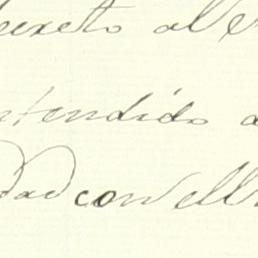 decreto al
ntendido a
dad con ell